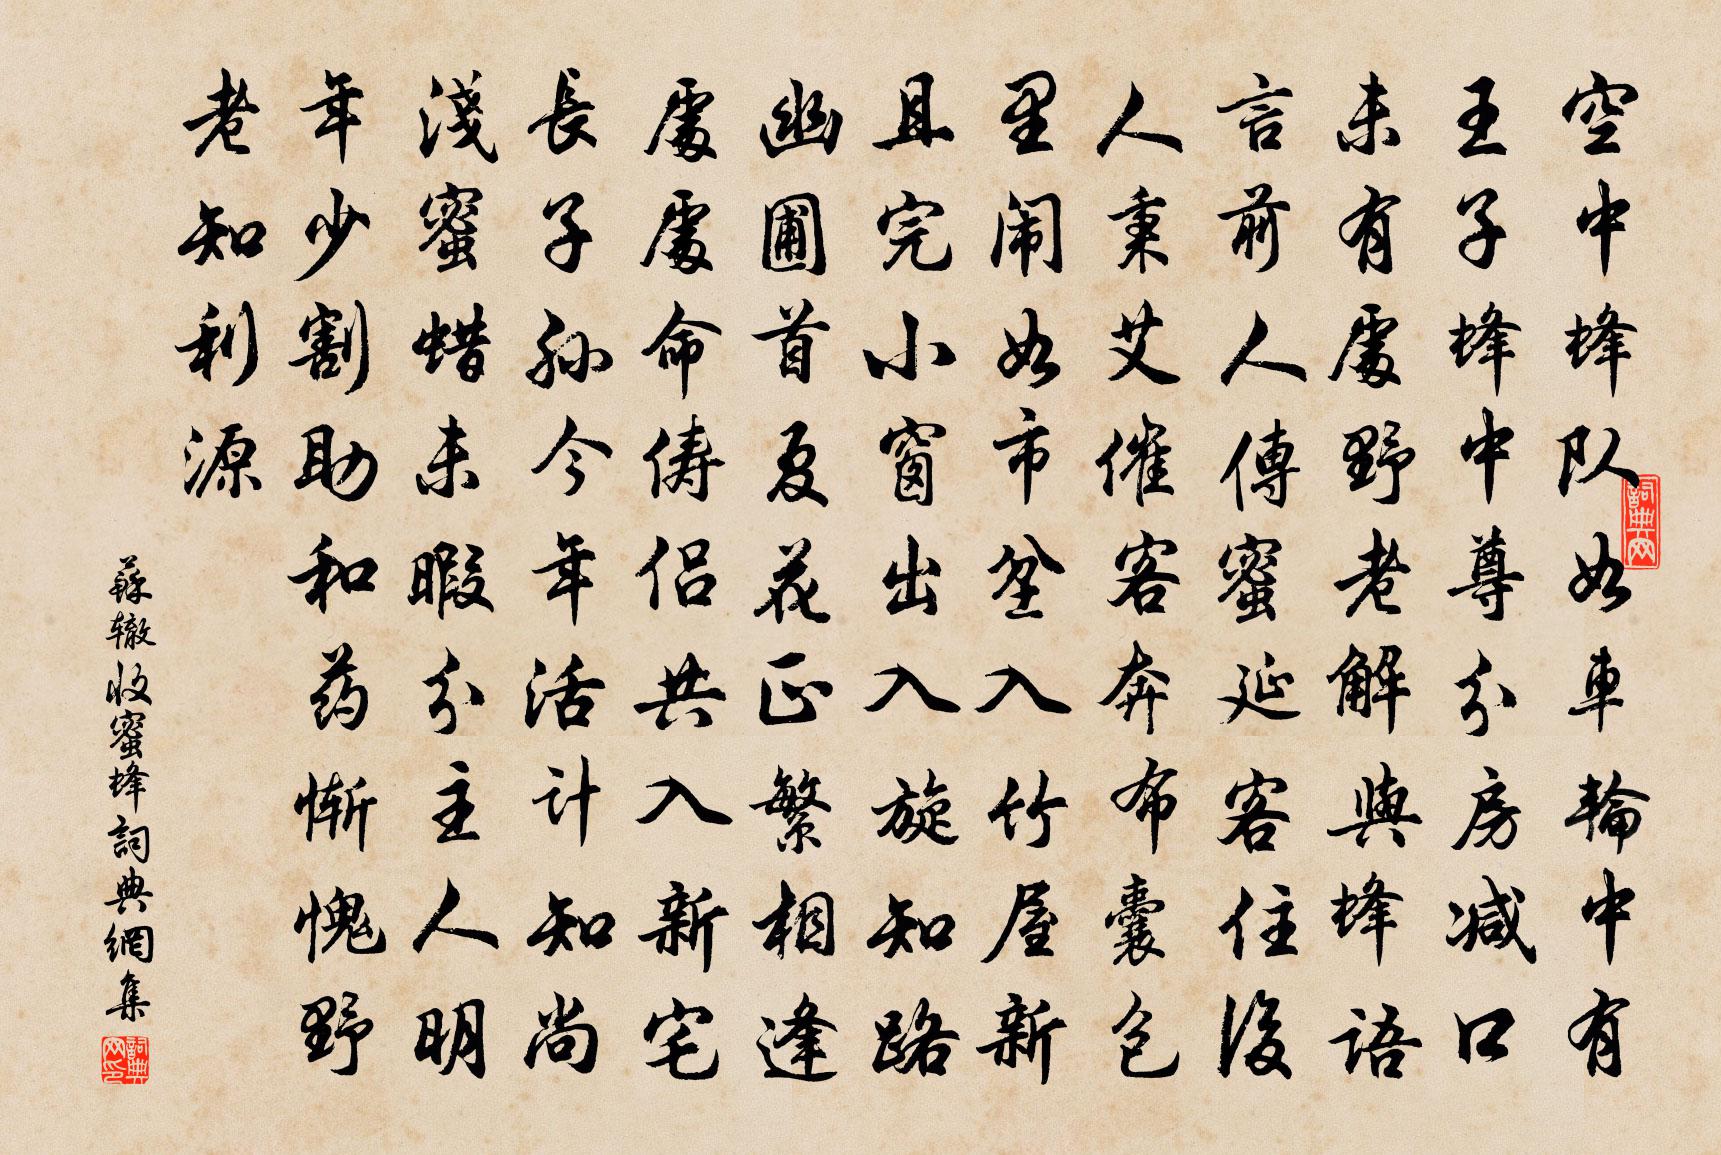 空中蜂队如車輪中有
王子蜂中尊分房减口
未有處野老解與蜂語
言前人傳蜜延客住後
人秉艾催客奔布囊包
里闹如市坌入竹屋新
且完小窗出入旋知路
幽圃首夏花正繁相逢
處處命俦侣共入新宅
長子孙今年活计知尚
淺蜜蜡未暇分主人明
年少割助和药惭愧野
老知利源
蘇辙收蜜蜂詞典網集
詞典网
詞典网印